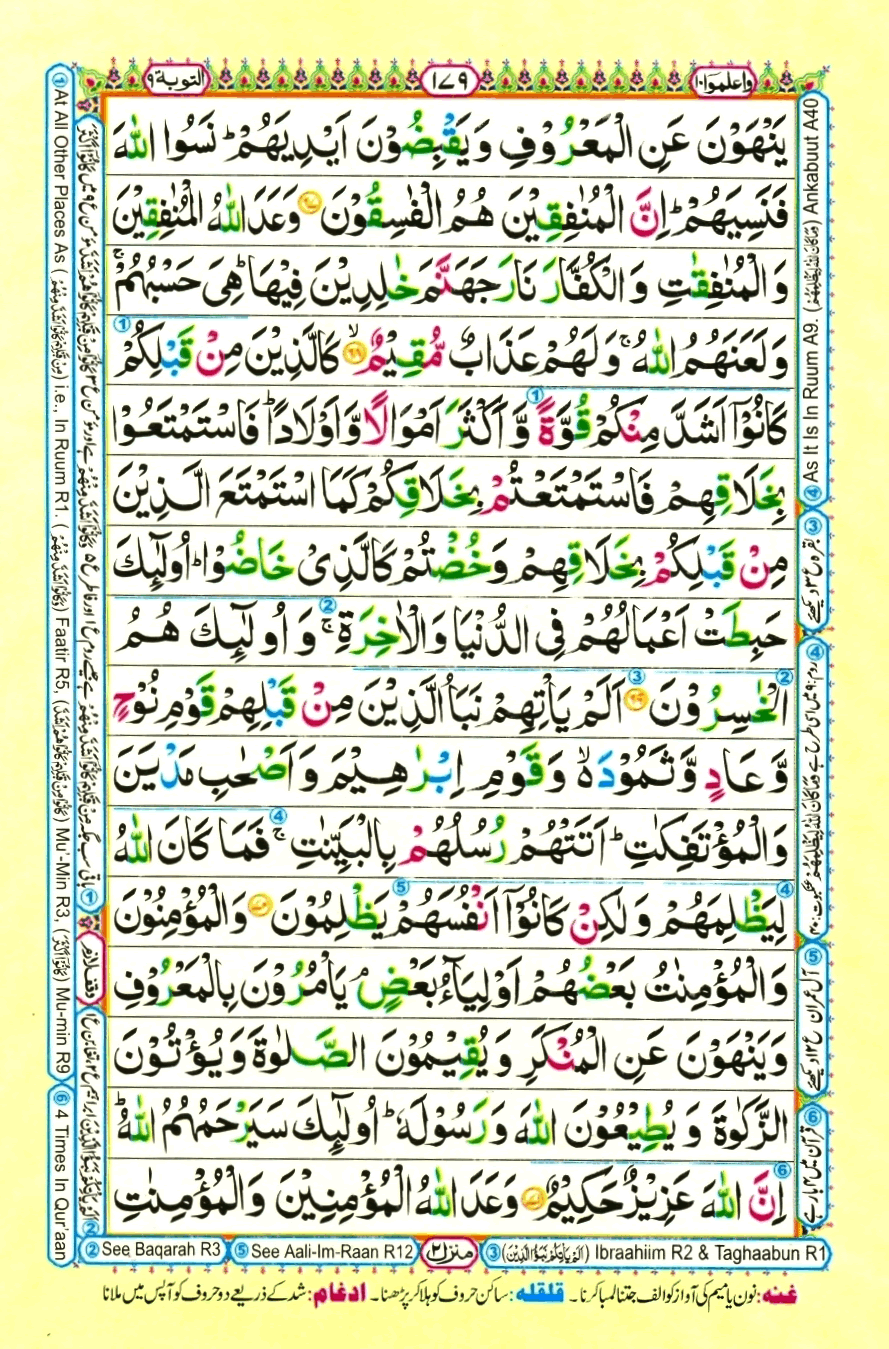 التوبة ٩
١٧٩
واعلموا ١٠
يَنْهَوْنَ عَنِ الْمَعْرُوْفِ وَيَقْبِضُوْنَ اَيْدِيَهُمْ ؕ نَسُوا اللّٰهَ
فَنَسِيَهُمْ ؕ اِنَّ الْمُنٰفِقِيْنَ هُمُ الْفٰسِقُوْنَ ۶۷ وَعَدَ اللّٰهُ الْمُنٰفِقِيْنَ
وَالْمُنٰفِقٰتِ وَالْكُفَّارَ نَارَ جَهَنَّمَ خٰلِدِيْنَ فِيْهَا ؕ هِىَ حَسْبُهُمْ ۚ
وَلَعَنَهُمُ اللّٰهُ ۚ وَلَهُمْ عَذَابٌ مُّقِيْمٌ ۙ ۶۸ كَالَّذِيْنَ مِنْ قَبْلِكُمْ
كَانُوْۤا اَشَدَّ مِنْكُمْ قُوَّةً وَّ اَكْثَرَ اَمْوَالًا وَّاَوْلَادًا ؕ فَاسْتَمْتَعُوْا
بِخَلَاقِهِمْ فَاسْتَمْتَعْتُمْ بِخَلَاقِكُمْ كَمَا اسْتَمْتَعَ الَّذِيْنَ
مِنْ قَبْلِكُمْ بِخَلَاقِهِمْ وَخُضْتُمْ كَالَّذِىْ خَاضُوْا ؕ اُولٰٓئِكَ
حَبِطَتْ اَعْمَالُهُمْ فِى الدُّنْيَا وَالْاٰخِرَةِ ۚ وَ اُولٰٓئِكَ هُمُ
الْخٰسِرُوْنَ ۶۹ اَلَمْ يَاْتِهِمْ نَبَاُ الَّذِيْنَ مِنْ قَبْلِهِمْ قَوْمِ نُوْحٍ
وَّعَادٍ وَّثَمُوْدَ ۙ وَقَوْمِ اِبْرٰهِيْمَ وَاَصْحٰبِ مَدْيَنَ
وَالْمُؤْتَفِكٰتِ ؕ اَتَتْهُمْ رُسُلُهُمْ بِالْبَيِّنٰتِ ۚ فَمَا كَانَ اللّٰهُ
لِيَظْلِمَهُمْ وَلٰكِنْ كَانُوْۤا اَنْفُسَهُمْ يَظْلِمُوْنَ ۷۰ وَالْمُؤْمِنُوْنَ
وَالْمُؤْمِنٰتُ بَعْضُهُمْ اَوْلِيَآءُ بَعْضٍ ۘ يَاْمُرُوْنَ بِالْمَعْرُوْفِ
وَيَنْهَوْنَ عَنِ الْمُنْكَرِ وَيُقِيْمُوْنَ الصَّلٰوةَ وَيُؤْتُوْنَ
الزَّكٰوةَ وَيُطِيْعُوْنَ اللّٰهَ وَرَسُوْلَهٗ ؕ اُولٰٓئِكَ سَيَرْحَمُهُمُ اللّٰهُ ؕ
اِنَّ اللّٰهَ عَزِيْزٌ حَكِيْمٌ ۷۱ وَعَدَ اللّٰهُ الْمُؤْمِنِيْنَ وَالْمُؤْمِنٰتِ
④ As It Is In Ruum A9. (وَمَا كَانَ اللّٰهُ لِيَظْلِمَهُمْ) Ankabuut A40
① At All Other Places As (مِنْ قَبْلِهِمْ كَانُوْا اَشَدَّ مِنْهُمْ) i.e., In Ruum R1. (وَكَانُوْا اَشَدَّ مِنْهُمْ) Faatir R5, (كَانُوْا مِنْ قَبْلِهِمْ كَانُوْا هُمْ اَشَدَّ) Mu'-Min R3, (كَانُوْا اَكْثَرَ) Mu-min R9
⑥ 4 Times In Qur'aan
وقف لازم
② See Baqarah R3
⑤ See Aali-Im-Raan R12
منزل ٢
③ (اَلَمْ يَاْتِكُمْ نَبَؤُا الَّذِيْنَ) Ibraahiim R2 & Taghaabun R1
③ بقرہ ع ۳ دیکھئے
⑤ آل عمران ع ۱۲ دیکھئے
⑥ قرآن میں ۴ بار ہے
غنہ: نون یا میم کی آواز کو الف جتنا لمبا کرنا۔ قلقلہ: ساکن حروف کو ہلا کر پڑھنا۔ ادغام: شد کے ذریعے دو حروف کو آپس میں ملانا